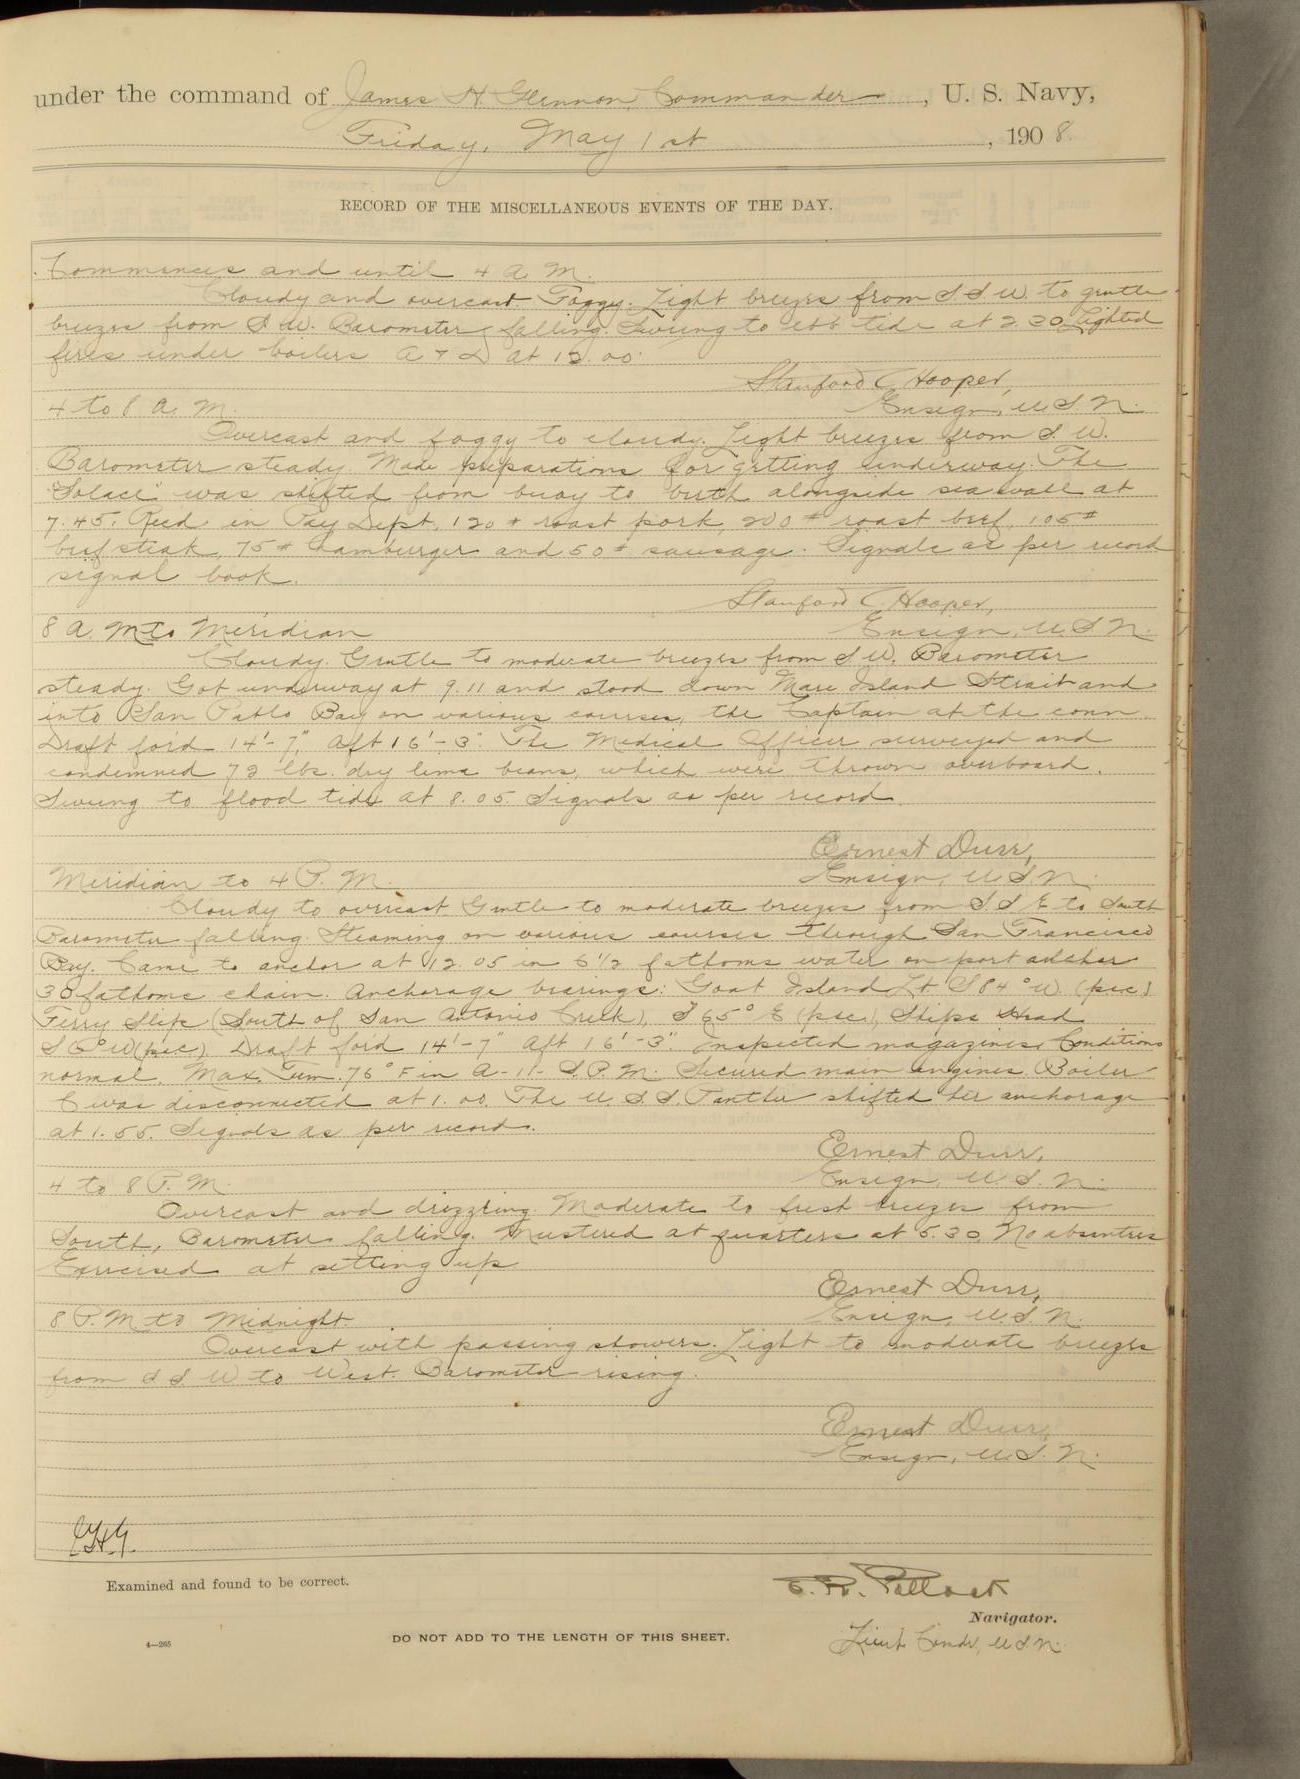 under the command of James H. Glennon, Commander, U. S. Navy,
Friday, May 1st, 1908.
RECORD OF THE MISCELLANEOUS EVENTS OF THE DAY.
Commences and until 4 A. M.
Cloudy and overcast Foggy. Light breezes from S S W. to gentle
breezes from S. W. Barometer falling. Swung to ebb tide at 2.30 Lighted
fires under boilers A & D at 12.00.
Stanford C Hooper,
4 to 8 A. M.
Ensign, U. S. N.
Overcast and foggy to cloudy. Light breezes from S. W.
Barometer steady. Made preparations for getting underway. The
"Solace" was shifted from buoy to berth alongside sea wall at
7.45. Recd. in Pay Dept. 120 # roast pork, 200 # roast beef, 105 #
beefsteak, 75 # hamburger and 50 # sausage. Signals as per record
signal book.
Stanford C. Hooper,
8 A. M. to Meridian
Ensign, U. S. N.
Cloudy. Gentle to moderate breezes from S. W. Barometer
steady. Got underway at 9.11 and stood down Mare Island Strait and
into San Pablo Bay on various courses, the Captain at the conn.
Draft for'd 14'-7", Aft 16'-3" The Medical Officer surveyed and
condemned 72 lbs. dry lima beans, which were thrown overboard.
Swung to flood tide at 8.05. Signals as per record.
Ernest Durr,
Meridian to 4 P. M.
Ensign, U. S. N.
Cloudy to overcast Gentle to moderate breezes from S. S. E. to South
Barometer falling. Steaming on various courses through San Francisco
Bay. Came to anchor at 12.05 in 6 1/2 fathoms water on port anchor
30 fathoms chain. Anchorage bearings: Goat Island Lt. S 84° W. (psc)
Ferry Slip (South of San Antonio Creek), S 65° E (psc), Ships Head
S W (psc). Draft for'd 14'-7" Aft 16'-3". Inspected magazines. Conditions
normal. Max. Tem. 76° F in A-11- S. P. M. Secured main engines. Boiler
C was disconnected at 1.00. The U. S. S. Panther shifted her anchorage
at 1.55. Signals as per record.
Ernest Durr,
4 to 8 P. M.
Ensign, U. S. N.
Overcast and drizzling. Moderate to fresh breezes from
South, Barometer falling. Mustered at quarters at 5.30, No absentees
Exercised at setting up
Ernest Durr,
8 P. M. to Midnight.
Ensign, U. S. N.
Overcast with passing showers. Light to moderate breezes
from S S. W to West. Barometer rising.
Ernest Durr,
Ensign, U. S. N.
JHG.
Examined and found to be correct.
Pollock
Navigator.
4—265
DO NOT ADD TO THE LENGTH OF THIS SHEET.
Lieut. Comdr, U S N.